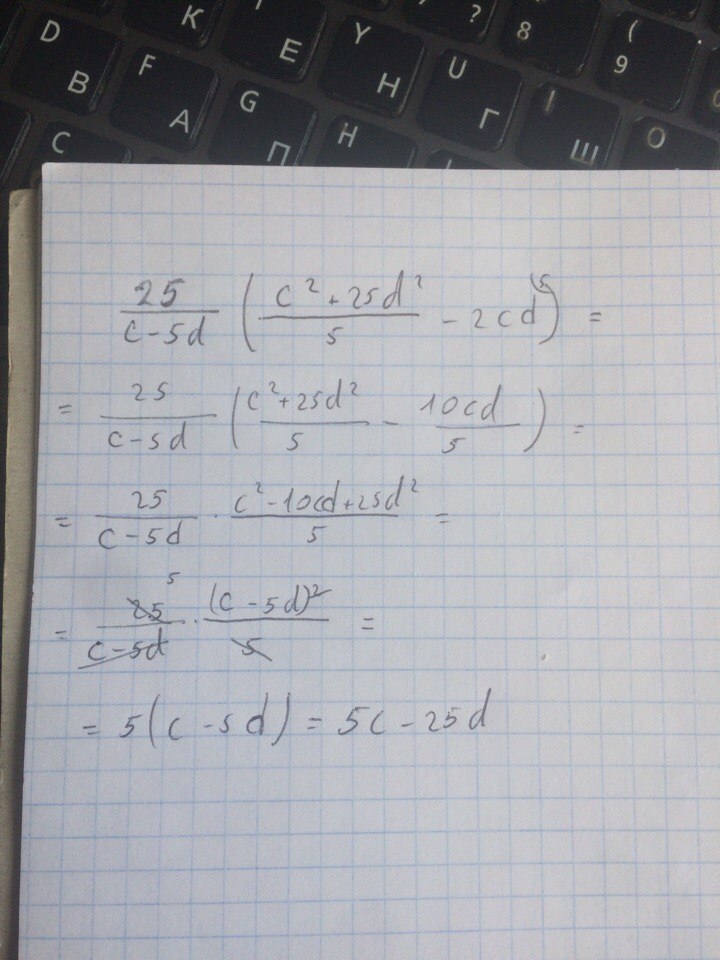 K E Y ? 8 ( 9
D B F A G П H Н U Г I Ш O
C H
25/(c-5d) ( (c²+25d²)/5 - 2cd^5) ) =
= 25/(c-5d) ( (c²+25d²)/5 - 10cd/5 ) =
= 25/(c-5d) · (c²-10cd+25d²)/5 =
= 25 5/(c-5d) · (c-5d)²/5 =
= 5(c-5d) = 5c-25d